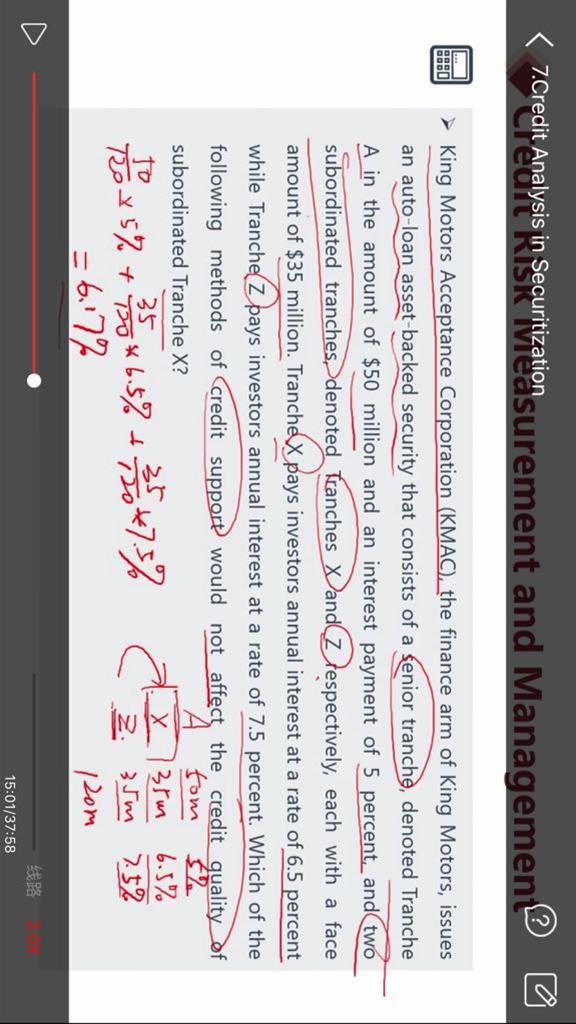 7.Credit Analysis in Securitization
Credit Risk Measurement and Management
➢ King Motors Acceptance Corporation (KMAC), the finance arm of King Motors, issues
an auto-loan asset-backed security that consists of a senior tranche, denoted Tranche
A in the amount of $50 million and an interest payment of 5 percent, and two
subordinated tranches, denoted Tranches X and Z respectively, each with a face
amount of $35 million. Tranche X pays investors annual interest at a rate of 6.5 percent
while Tranche Z pays investors annual interest at a rate of 7.5 percent. Which of the
following methods of credit support would not affect the credit quality of
subordinated Tranche X?
A 50m 5%
X 35m 6.5%
Z. 35m 7.5%
120m
50/120 × 5% + 35/120 * 6.5% + 35/120 * 7.5%
= 6.17%
15:01/37:58
线路
2.0X